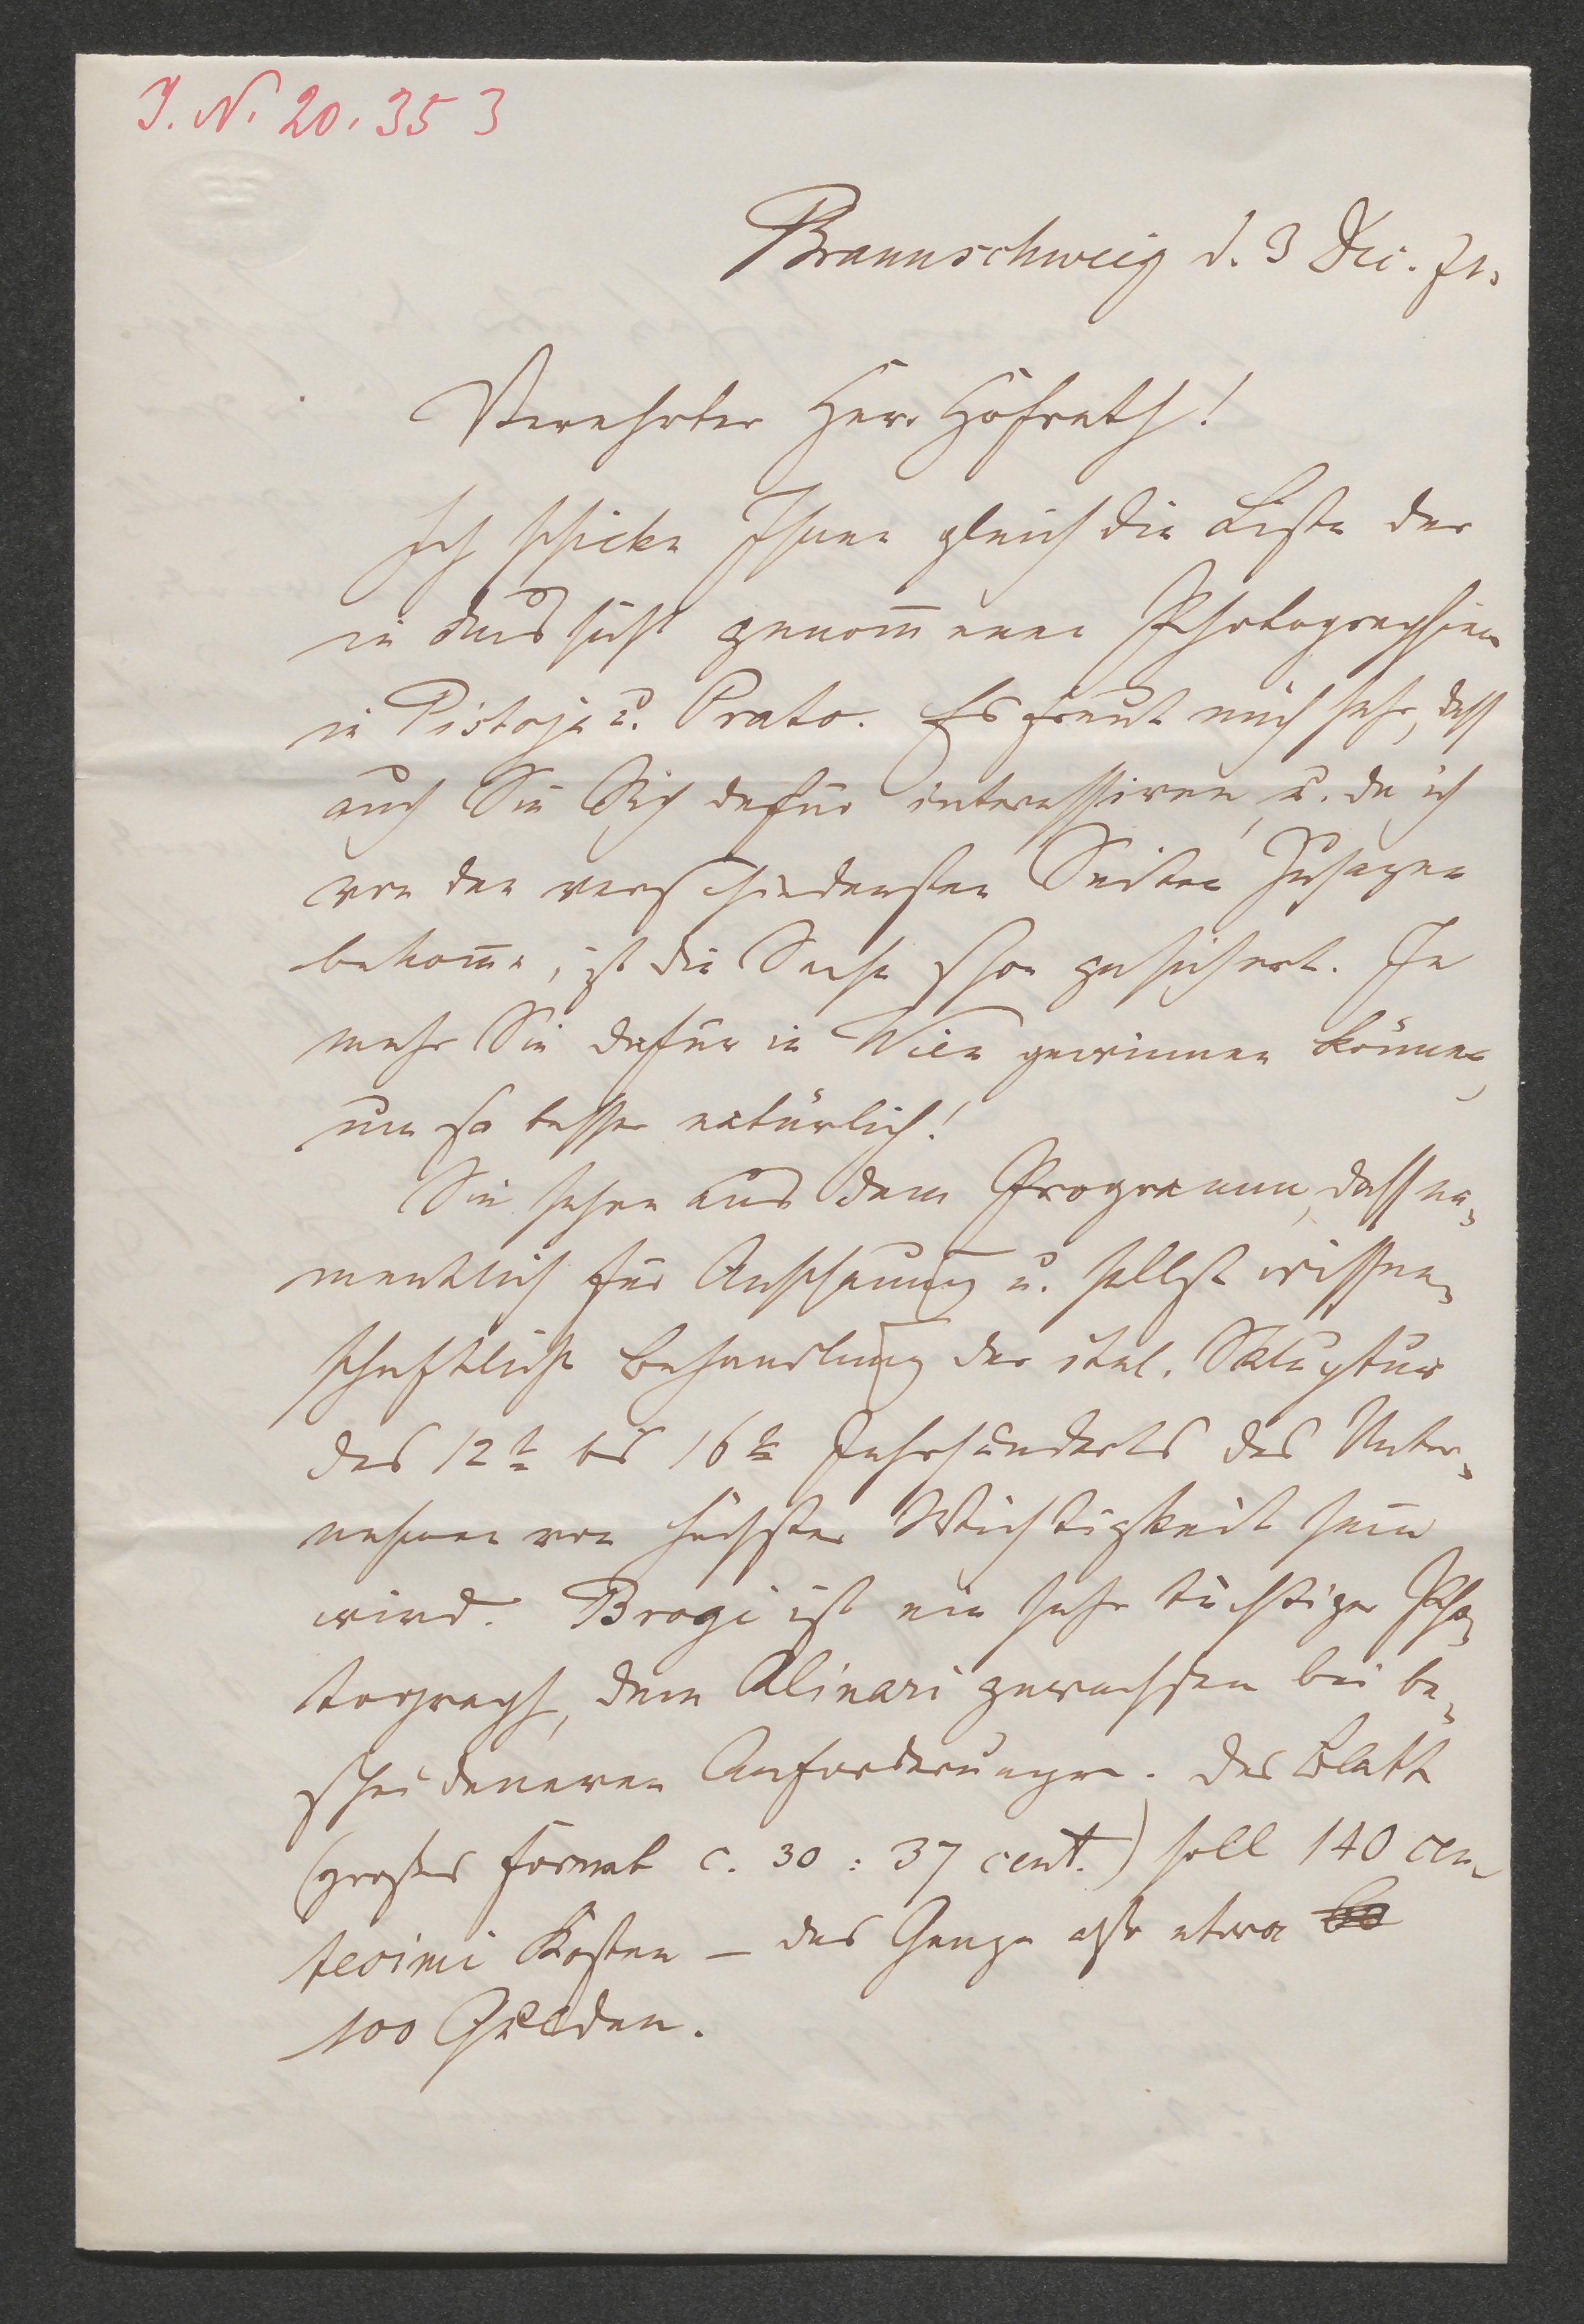 J. N. 20.353
Braunschweig d. 3 Dec. 71.
Verehrter Herr Hofrath!
Ich schicke Ihnen gleich die Liste der
in Aussicht genom̄enen Photographien
in Pistoja u. Prato. Es freut mich sehr, dass
auch Sie Sich dafür interessiren, u. da ich
von den verschiedensten Seiten Zusagen
bekom̄e, ist die Sache schon gesichert. Je
mehr Sie dafür in Wien gewinnen können,
um so besser natürlich!
Sie sehen aus dem Programm, dass na-
mentlich für Anschauung u. selbst wissen-
schaftliche Behandlung der ital. Skulptur
des 12t bis 16ten Jahrhunderts das Unter-
nehmen von höchster Wichtigkeit sein
wird. Brogi ist ein sehr tüchtiger Pho-
tograph, dem Alinari gewachsen bei be-
scheideneren Anforderungen. Das Blatt
(großes Format c. 30 : 37 cent.) soll 140 cen-
tesimi kosten – das Ganze also etwa
100 Gulden.